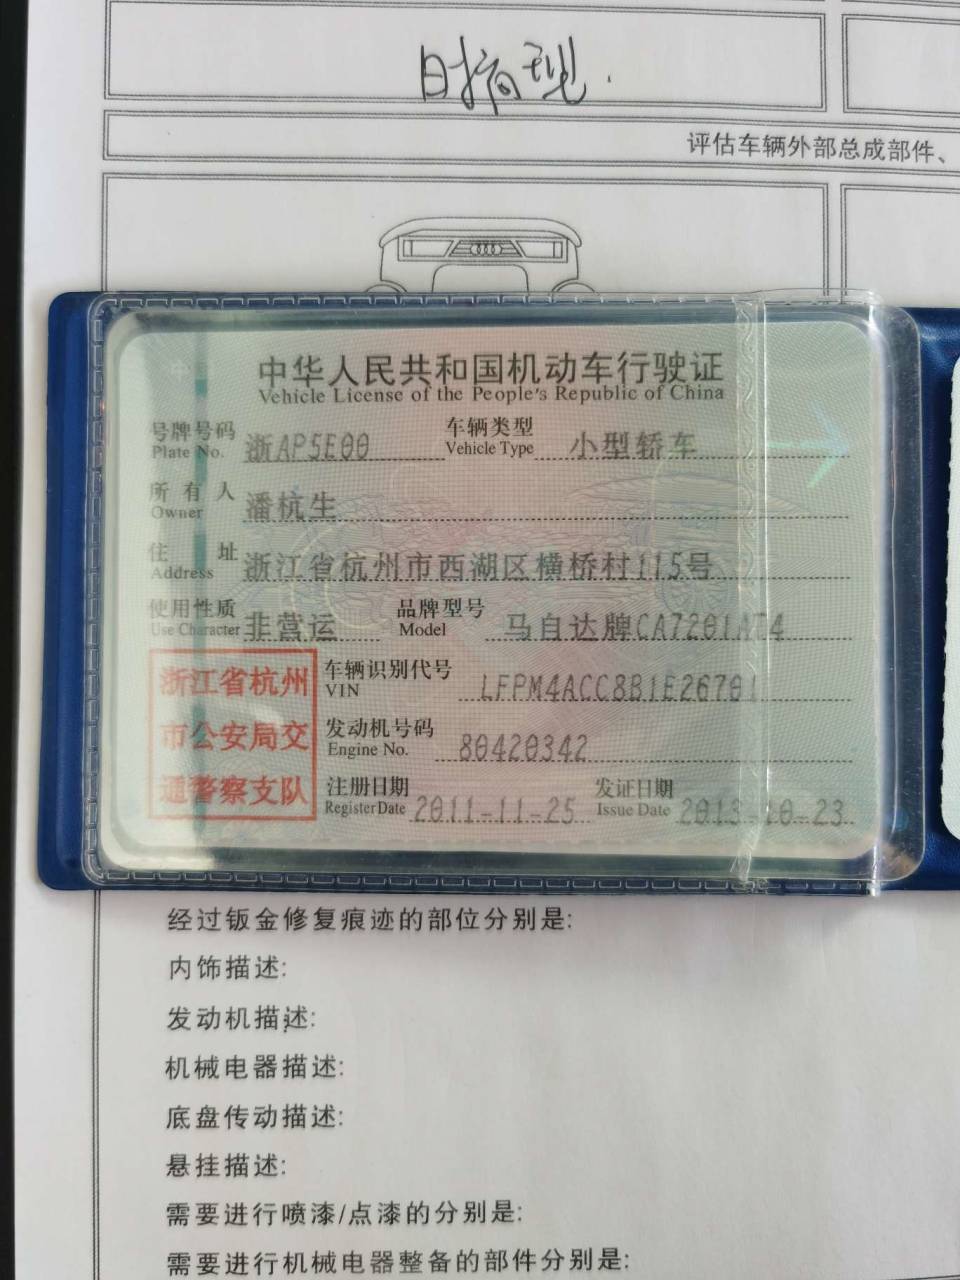 评估车辆外部总成部件、
中华人民共和国机动车行驶证
Vehicle License of the People's Republic of China
号牌号码 浙AP5E00 车辆类型 小型轿车
Plate No. Vehicle Type
所有人 潘杭生
Owner
住址 浙江省杭州市西湖区横桥村115号
Address
使用性质 非营运 品牌型号 马自达牌CA7201AT4
Use Character Model
浙江省杭州
市公安局交
通警察支队
车辆识别代号 LFPM4ACC8B1E26701
VIN
发动机号码 80420342
Engine No.
注册日期 2011-11-25 发证日期 2013-10-23
Register Date Issue Date
经过钣金修复痕迹的部位分别是:
内饰描述:
发动机描述:
机械电器描述:
底盘传动描述:
悬挂描述:
需要进行喷漆/点漆的分别是:
需要进行机械电器整备的部件分别是: